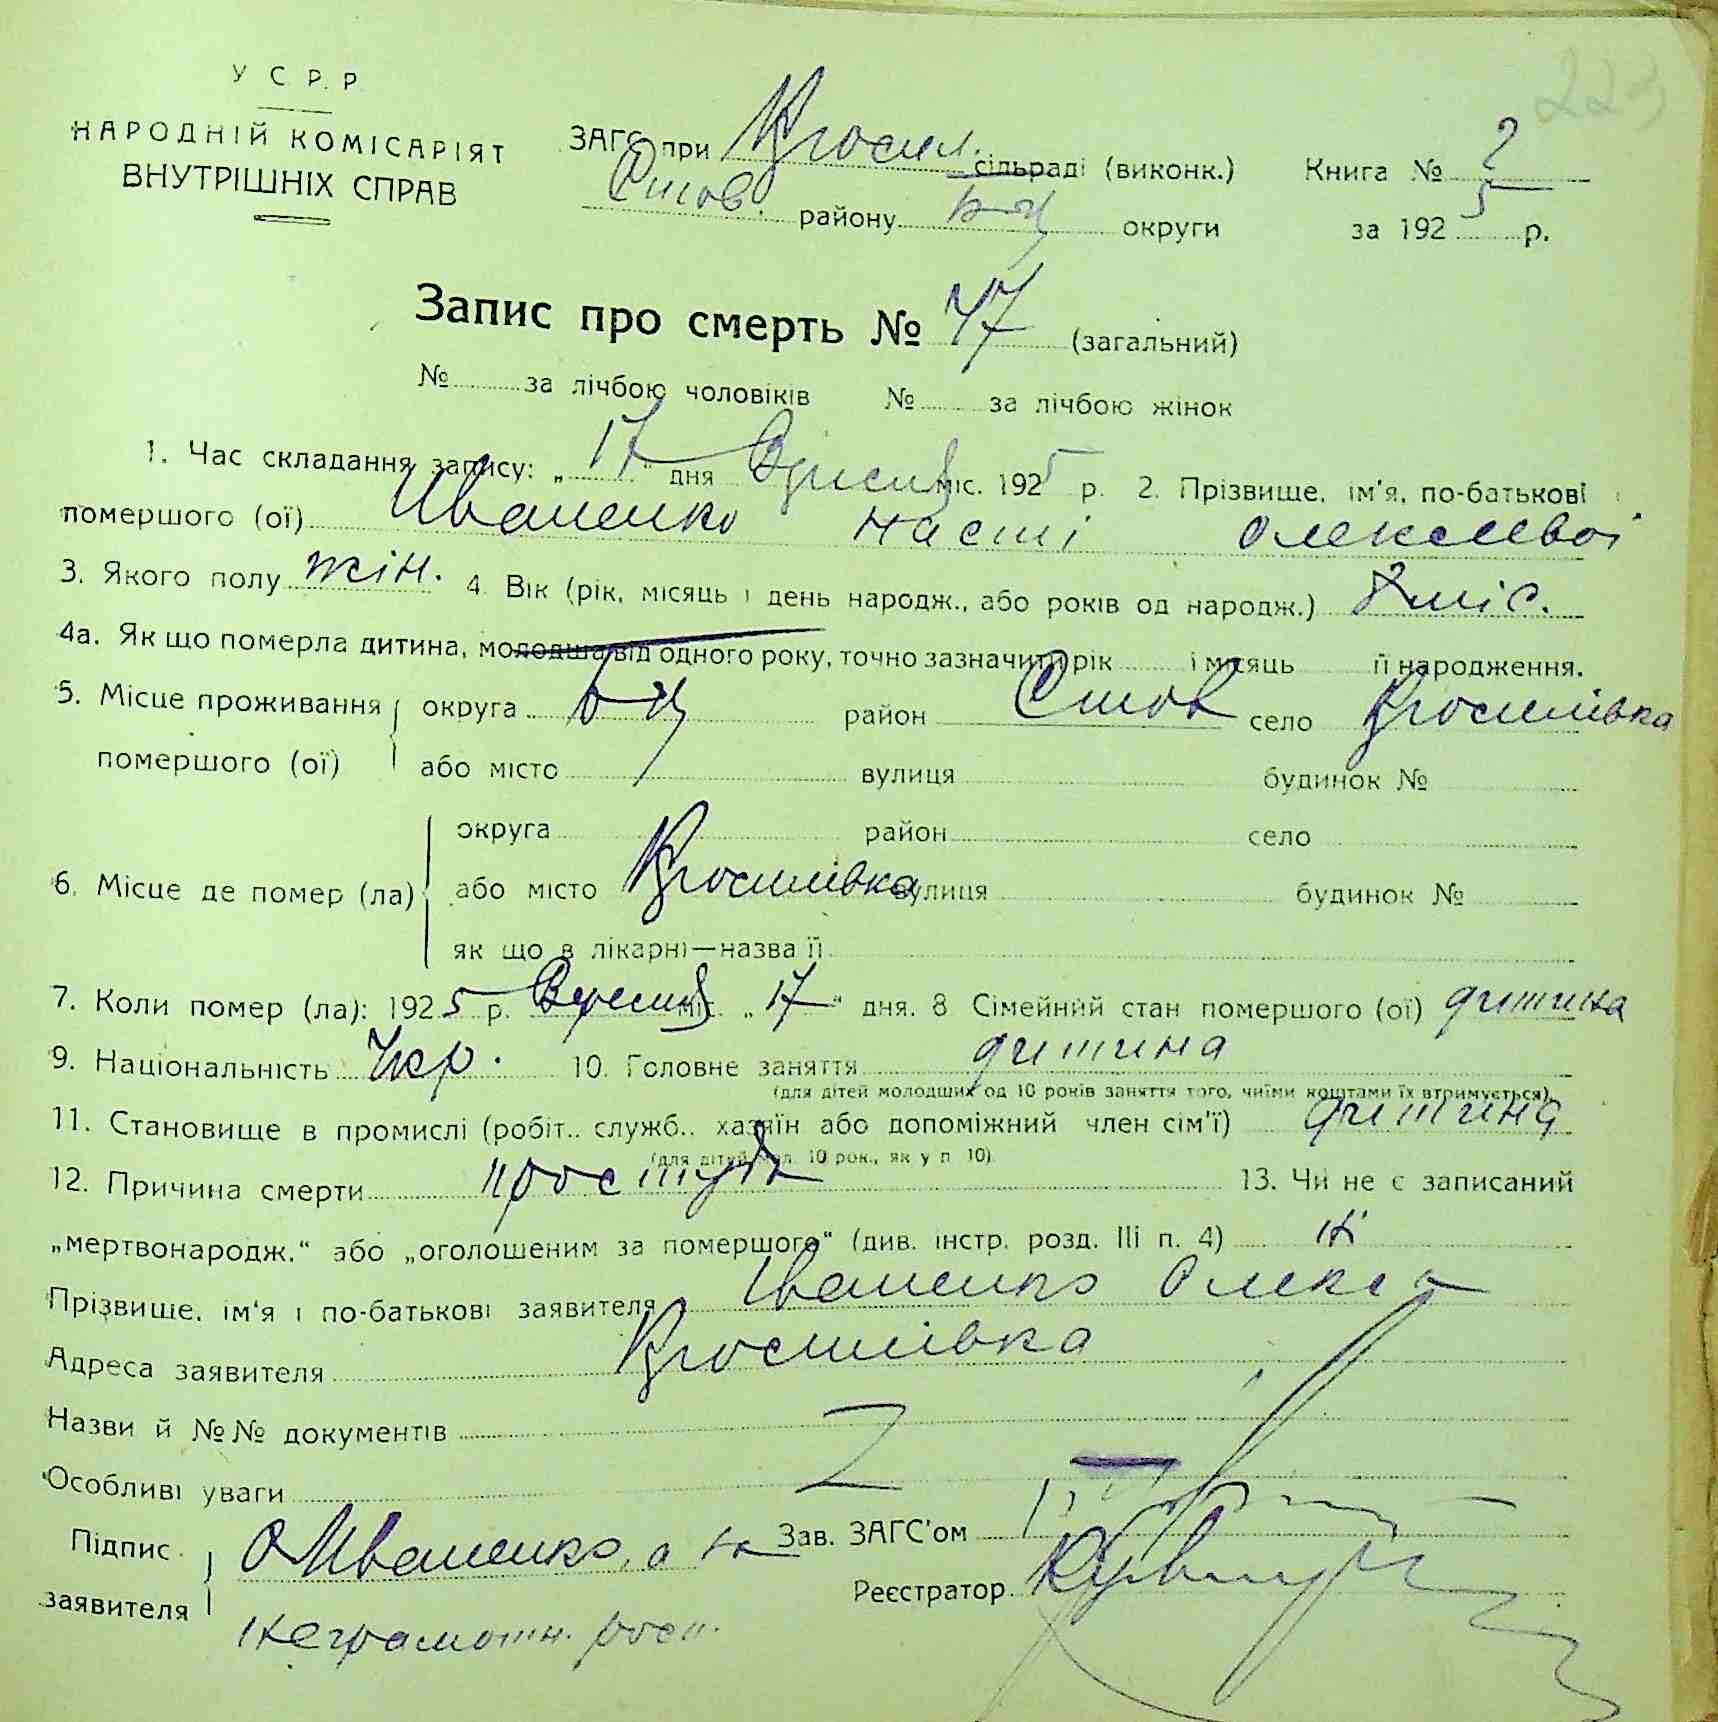 223
У С Р. Р.
НАРОДНІЙ КОМІСАРІЯТ
ВНУТРІШНІХ СПРАВ
ЗАГС при сільраді (виконк.) Книга № 2
району округи за 1925 р.
Запис про смерть № 47 (загальний)
№ за лічбою чоловіків № за лічбою жінок
1. Час складання запису: „17" дня міс. 1925 р. 2. Прізвище, ім'я, по-батькові
помершого (ої) Иваненко Насті Олексієвої
3. Якого полу жін. 4. Вік (рік, місяць і день народж., або років од народж.) 8 міс.
4а. Як що померла дитина, молодша від одного року, точно зазначити рік і місяць її народження.
5. Місце проживання округа район село
помершого (ої) або місто вулиця будинок №
округа район село
6. Місце де помер (ла) або місто вулиця будинок №
як що в лікарні—назва її
7. Коли помер (ла): 1925 р. Вересня міс. „17" дня. 8 Сімейний стан помершого (ої) дитина
9. Національність Укр. 10. Головне заняття дитина
(для дітей молодших од 10 років заняття того, чиїми коштами їх втримується)
11. Становище в промислі (робіт., служб., хазяїн або допоміжний член сім'ї) дитина
(для дітей мол. 10 рок., як у п. 10)
12. Причина смерти простуда 13. Чи не є записаний
„мертвонародж." або „оголошеним за помершого" (див. інстр. розд. III п. 4) ні
Прізвище, ім'я і по-батькові заявителя Іваненко Олекса
Адреса заявителя
Назви й №№ документів
Особливі уваги
Підпис О Иваненко, а за Зав. ЗАГС'ом
заявителя неграмотн. росп. Реєстратор